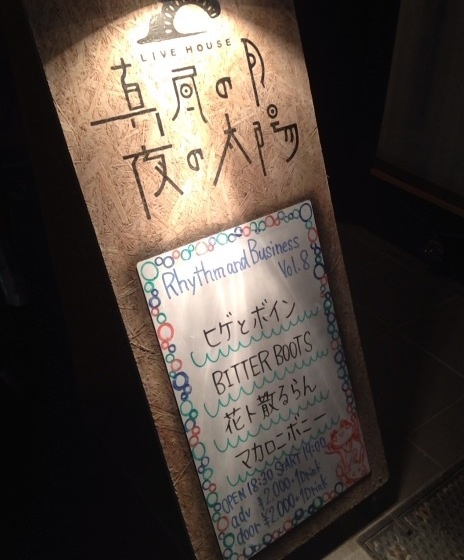 LIVE HOUSE
真昼の月
夜の太陽
Rhythm and Business
Vol.8
ヒゲとボイン
BITTER BOOTS
花ト散るらん
マカロニボニー
OPEN 18:30 START 19:00
adv ¥2,000+1Drink
door ¥2,000+1Drink